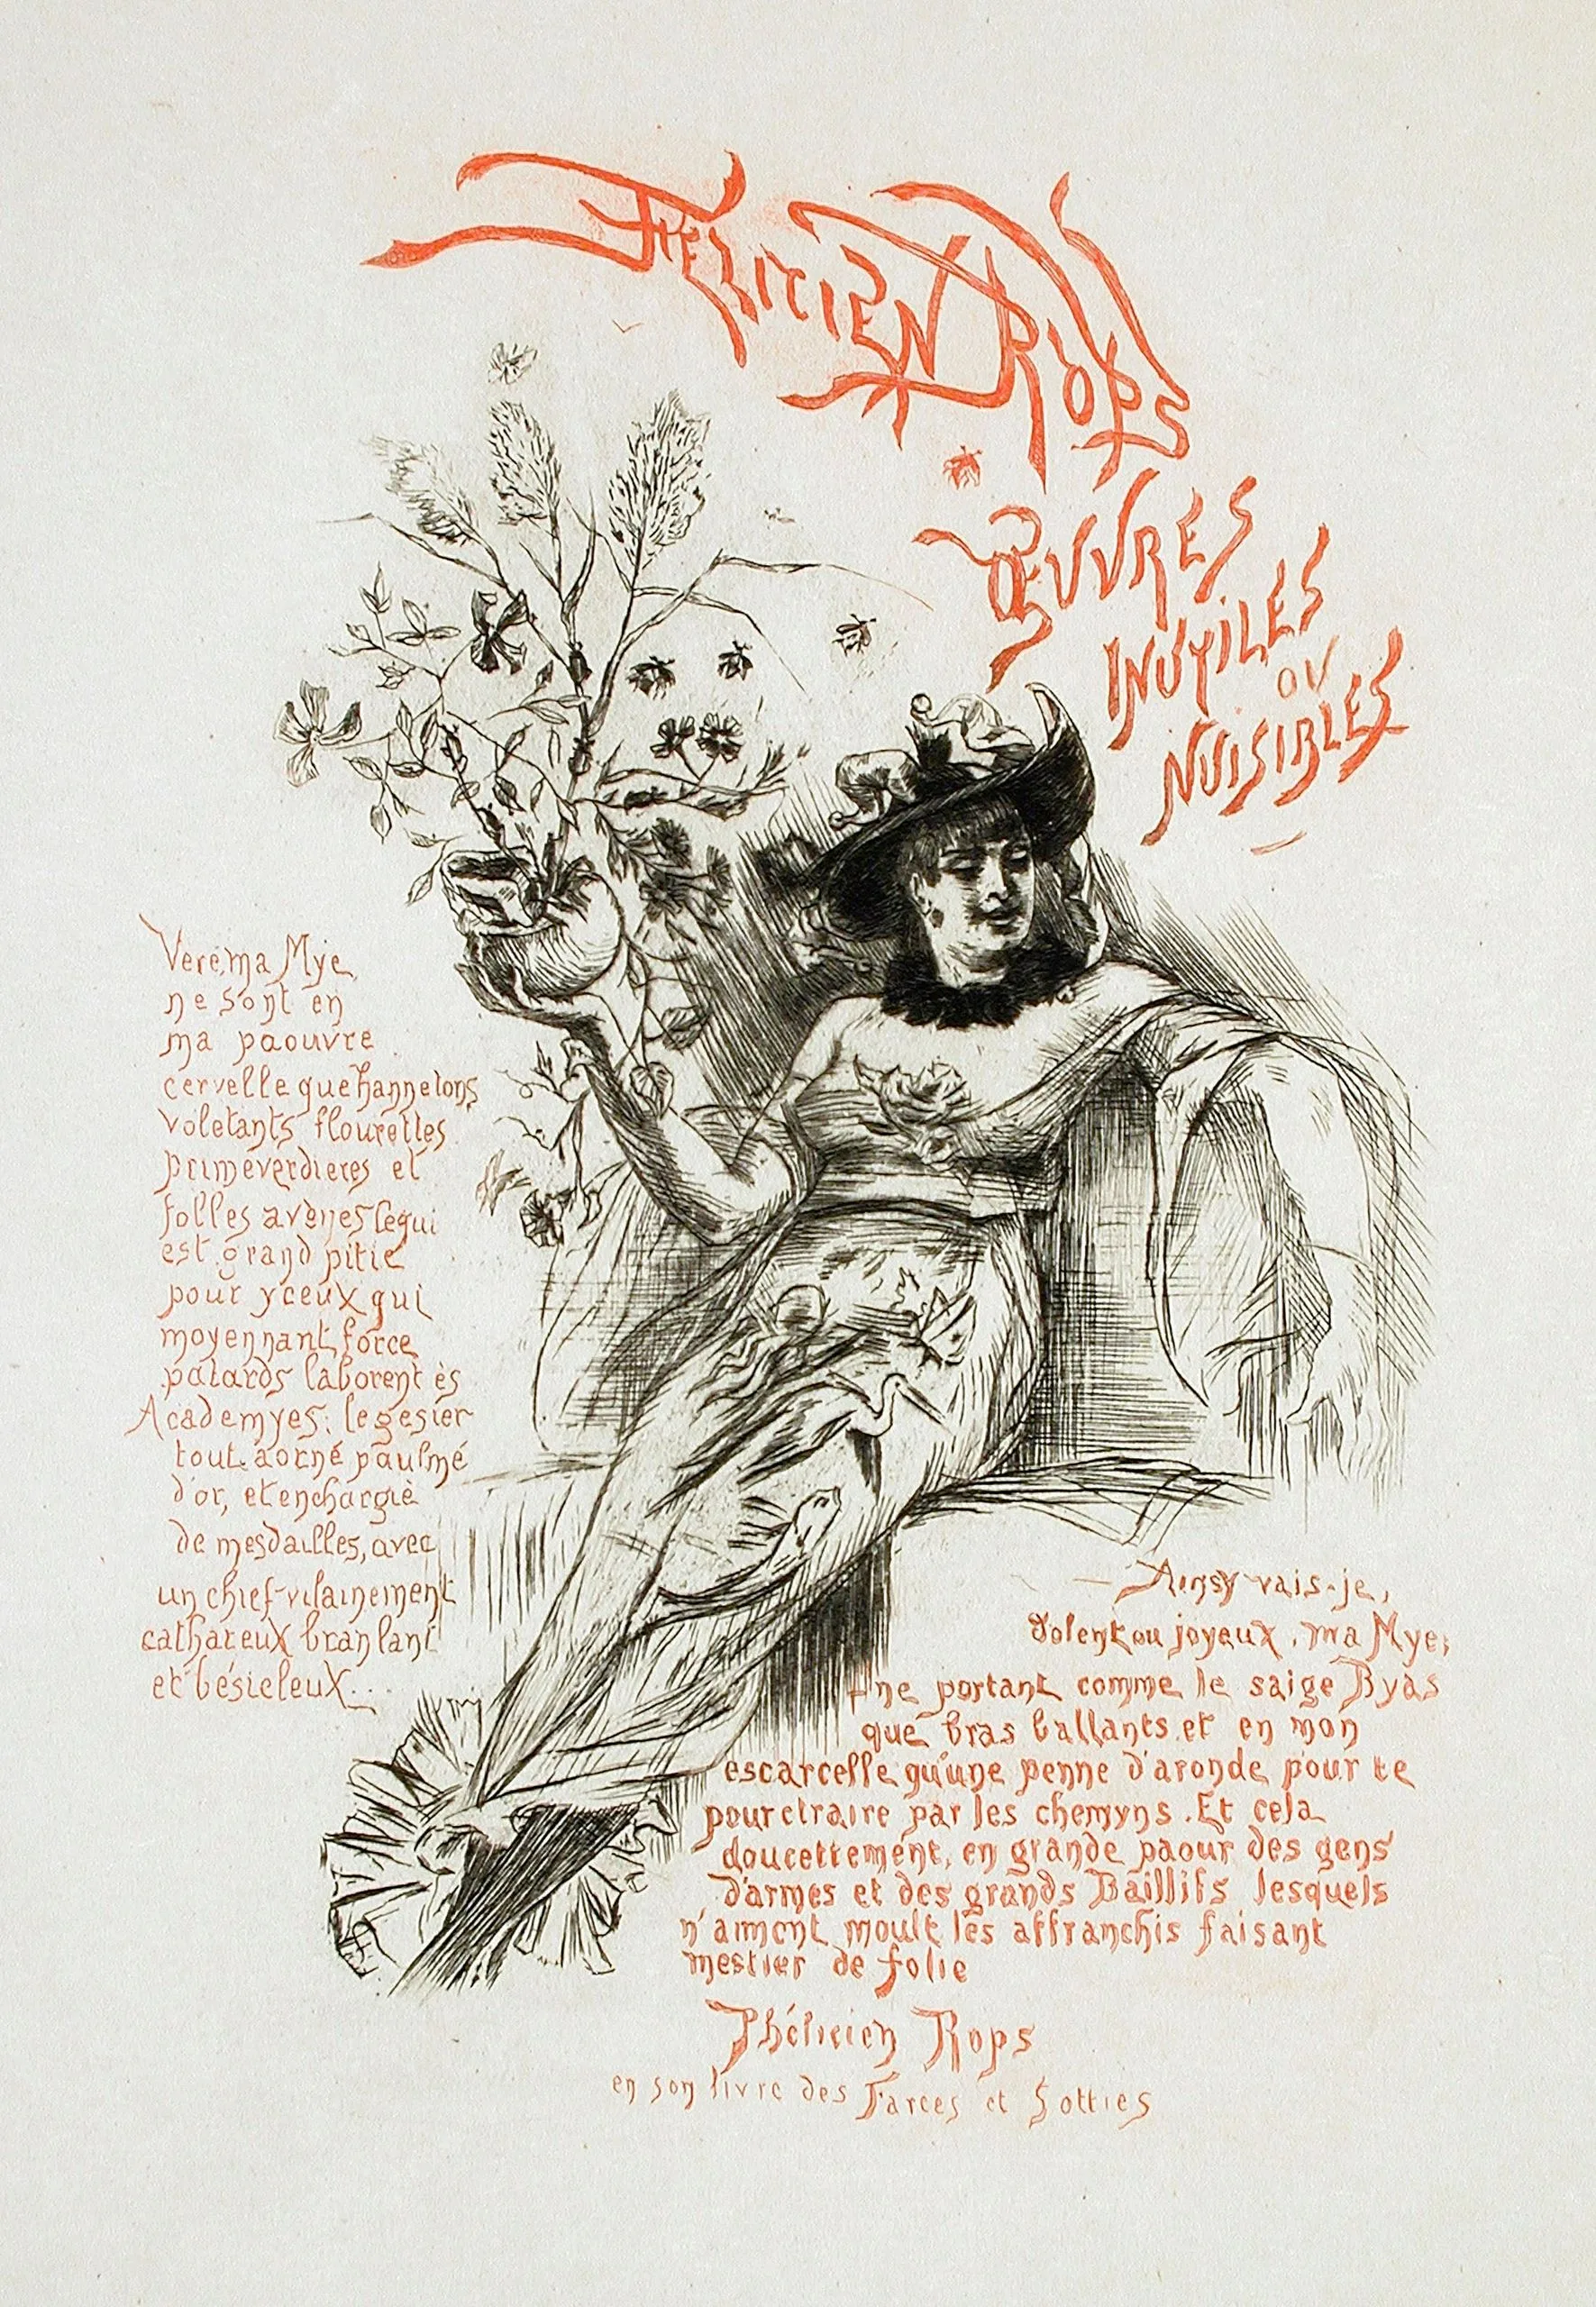 FÉLICIEN ROPS
ŒUVRES
INUTILES
OU
NUISIBLES
Vere, ma Mye,
ne sont en
ma paouvre
cervelle que hannetons
voletants flourettes
priméverdieres et
folles avenes ce qui
est grand pitie
pour yceux qui
moyennant force
patards laborent ès
Academyes, le gesier
tout aorné paulmé
d'or, et enchargié
de mesdailles, avec
un chief vilainement
cathareux branlant
et bésicleux...
— Ainsy vais-je,
dolent ou joyeux, ma Mye,
ne portant comme le saige Byas
que bras ballants et en mon
escarcelle qu'une penne d'aronde pour te
pourctraire par les chemyns. Et cela
doucettement, en grande paour des gens
d'armes et des grands Baillifs lesquels
n'aiment moult les affranchis faisant
mestier de folie
Phélicien Rops
en son livre des Farces et Sotties